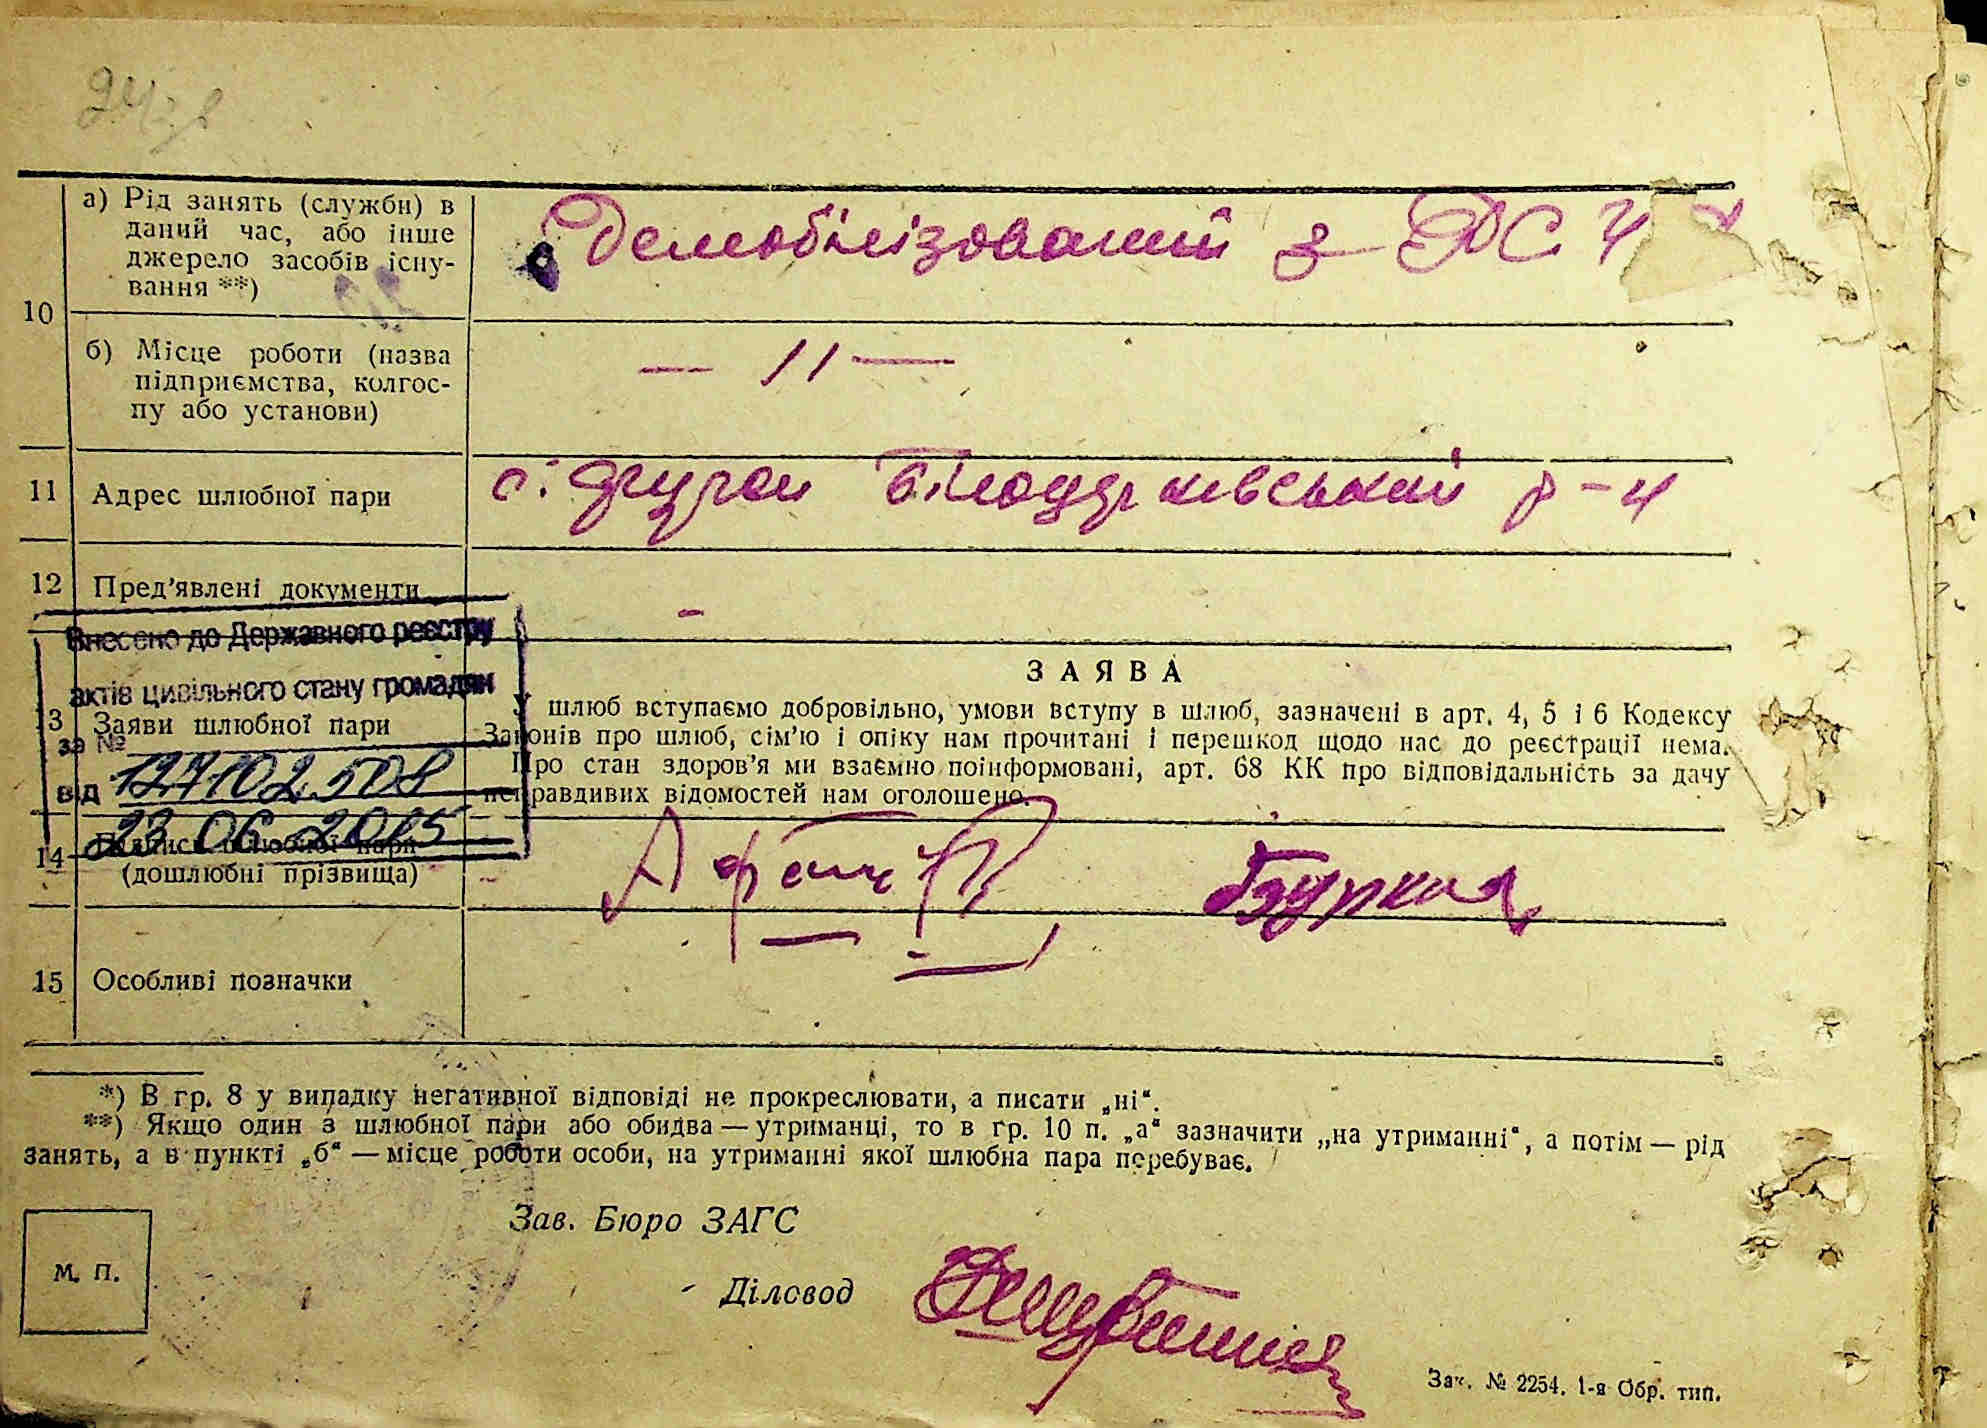 а) Рід занять (служби) в
даний час, або інше
джерело засобів існу-
вання **)
Демобілізований з
10
б) Місце роботи (назва
підприємства, колгос-
пу або установи)
— 11 —
11 Адрес шлюбної пари
с. Білоцерківський р-н
12 Пред'явлені документи
-
Внесено до Державного реєстру
актів цивільного стану громадян
за № 127102508
від 23 06 2015
З А Я В А
13 Заяви шлюбної пари
У шлюб вступаємо добровільно, умови вступу в шлюб, зазначені в арт. 4, 5 і 6 Кодексу
Законів про шлюб, сім'ю і опіку нам прочитані і перешкод щодо нас до реєстрації нема.
Про стан здоров'я ми взаємно поінформовані, арт. 68 КК про відповідальність за дачу
неправдивих відомостей нам оголошено.
14 Підписи шлюбної пари
(дошлюбні прізвища)
15 Особливі позначки
*) В гр. 8 у випадку негативної відповіді не прокреслювати, а писати „ні“.
**) Якщо один з шлюбної пари або обидва — утриманці, то в гр. 10 п. „а“ зазначити „на утриманні“, а потім — рід
занять, а в пункті „б“ — місце роботи особи, на утриманні якої шлюбна пара перебуває.
Зав. Бюро ЗАГС
М. П.
Діловод
Зак. № 2254. 1-я Обр. тип.